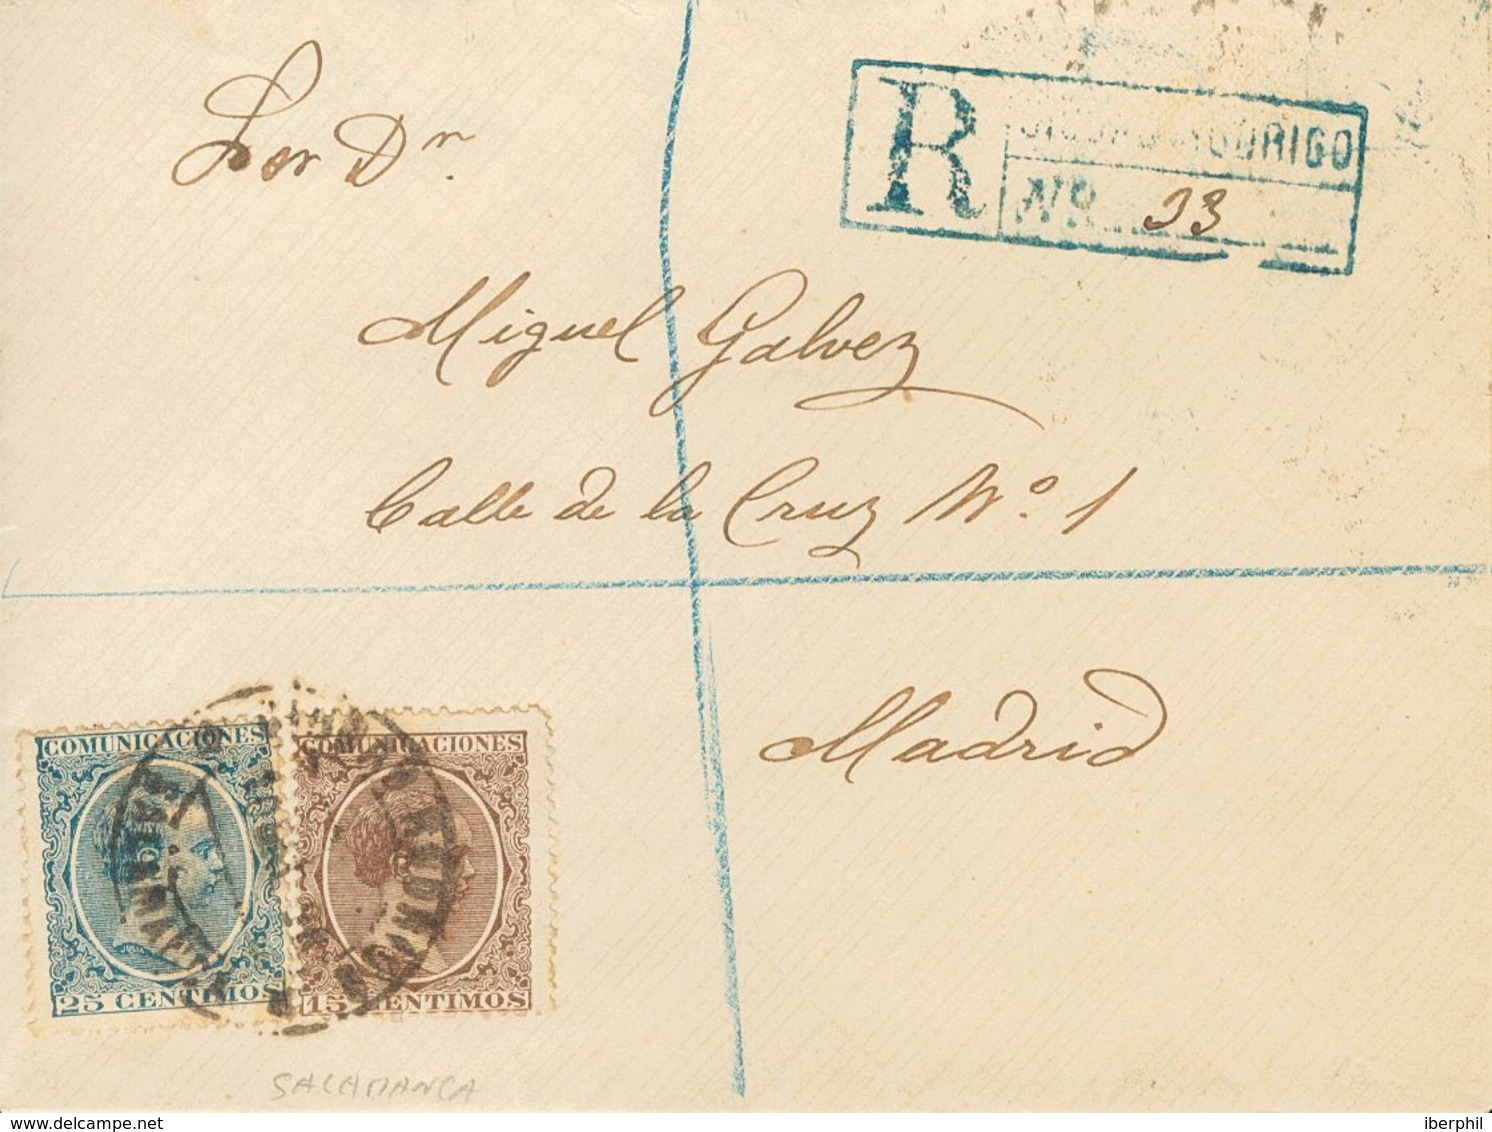 Sor Dn
R
CIUDAD-RODRIGO
Nº 93
Miguel Galvez
Calle de la Cruz Nº 1
Madrid
COMUNICACIONES
COMUNICACIONES
25 CENTIMOS
15 CENTIMOS
SALAMANCA
delcampe.net
iberphil